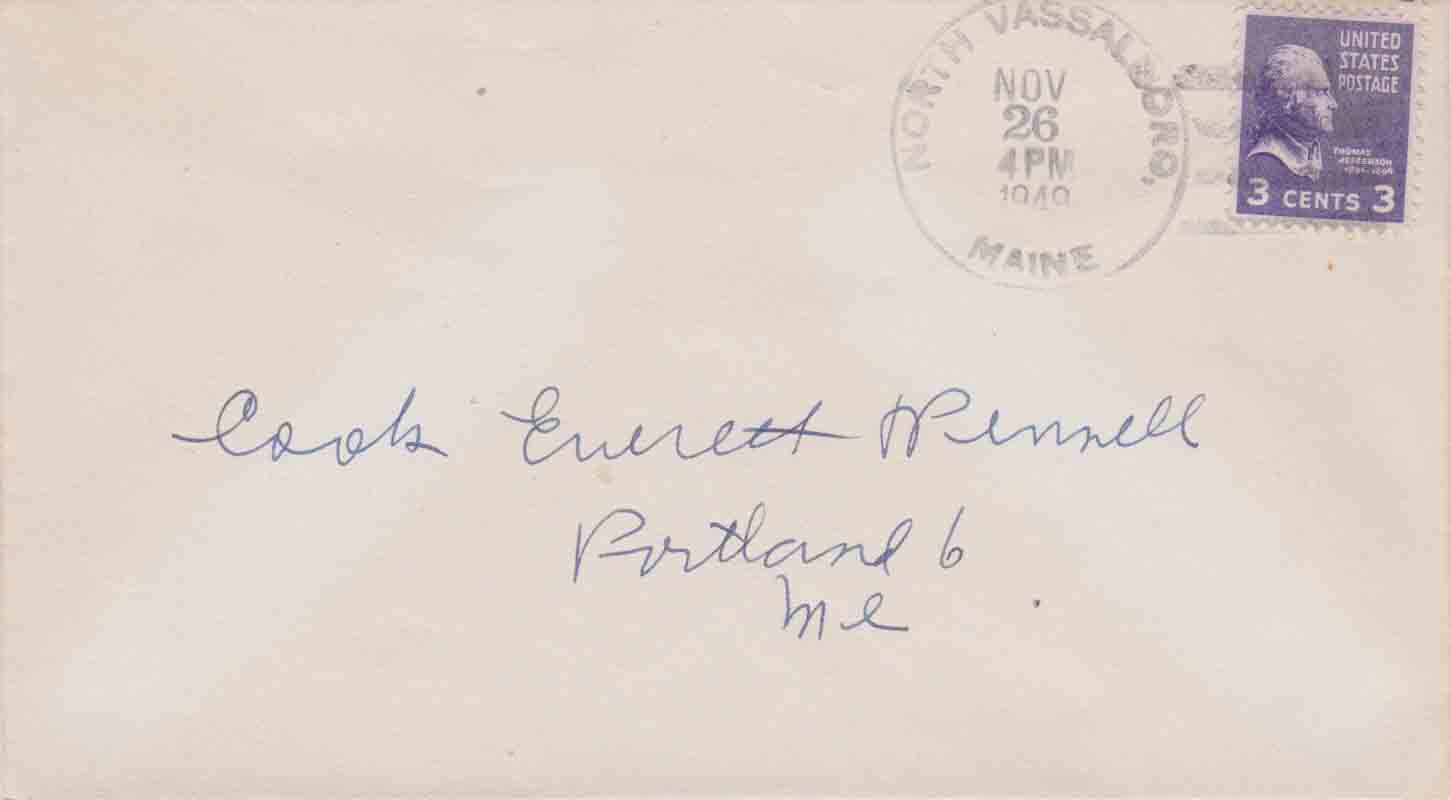 NORTH VASSALBORO,
NOV
26
4 PM
1949
MAINE
UNITED
STATES
POSTAGE
THOMAS
JEFFERSON
3 CENTS 3
Cook Everett & Pennell
Portland 6
Me